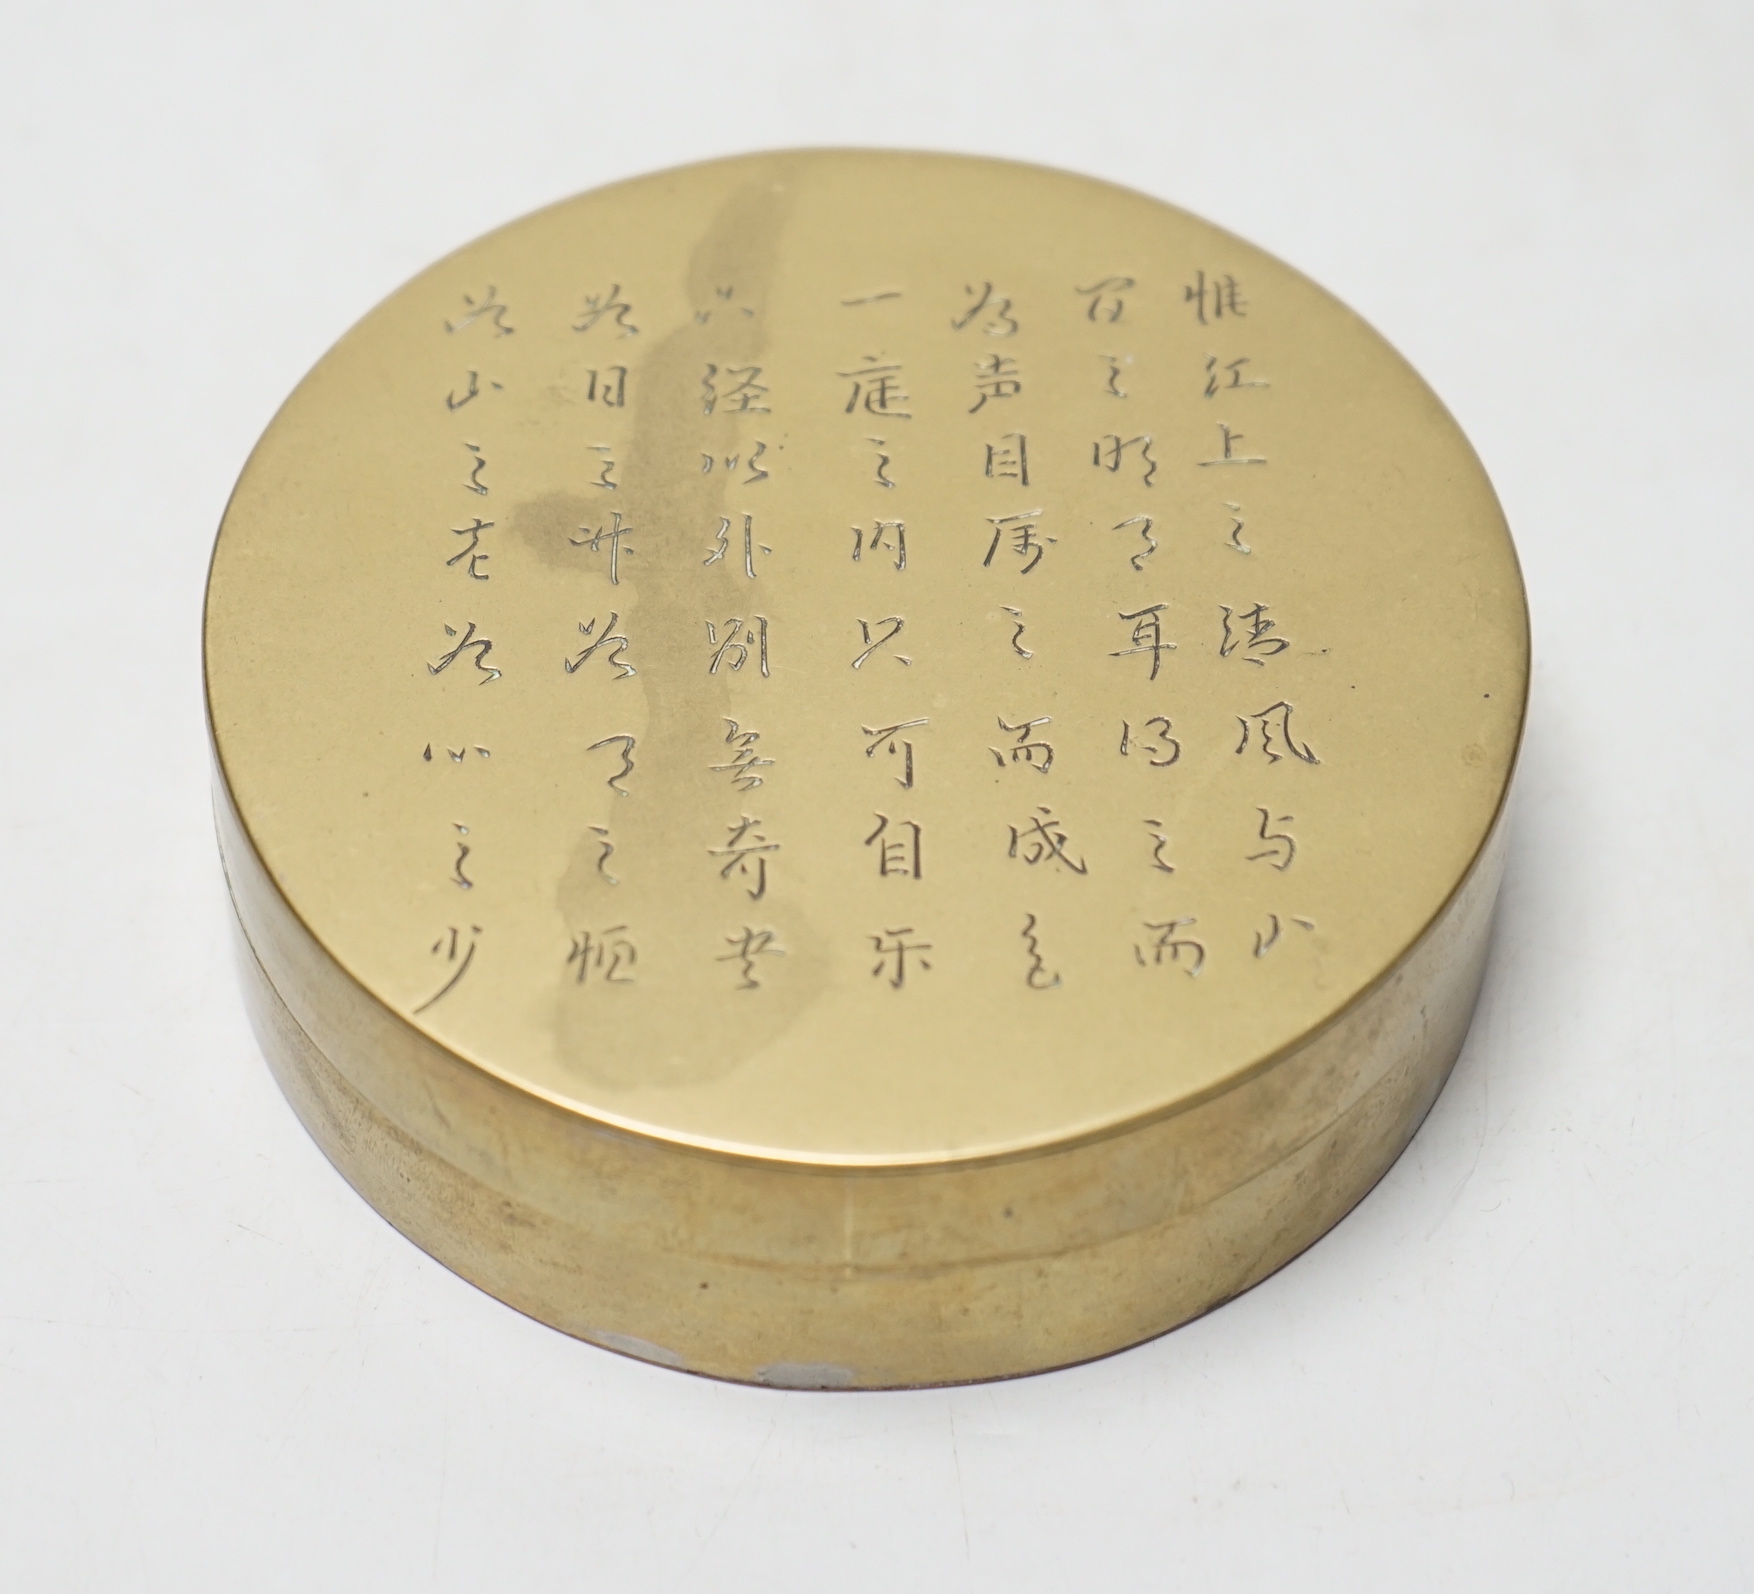 惟江上之清風与山
間之明月耳得之而
為声目属之而成色
一庭之内只可自乐
六経以外别無奇書
如日之升如月之恒
如山之老如心之少